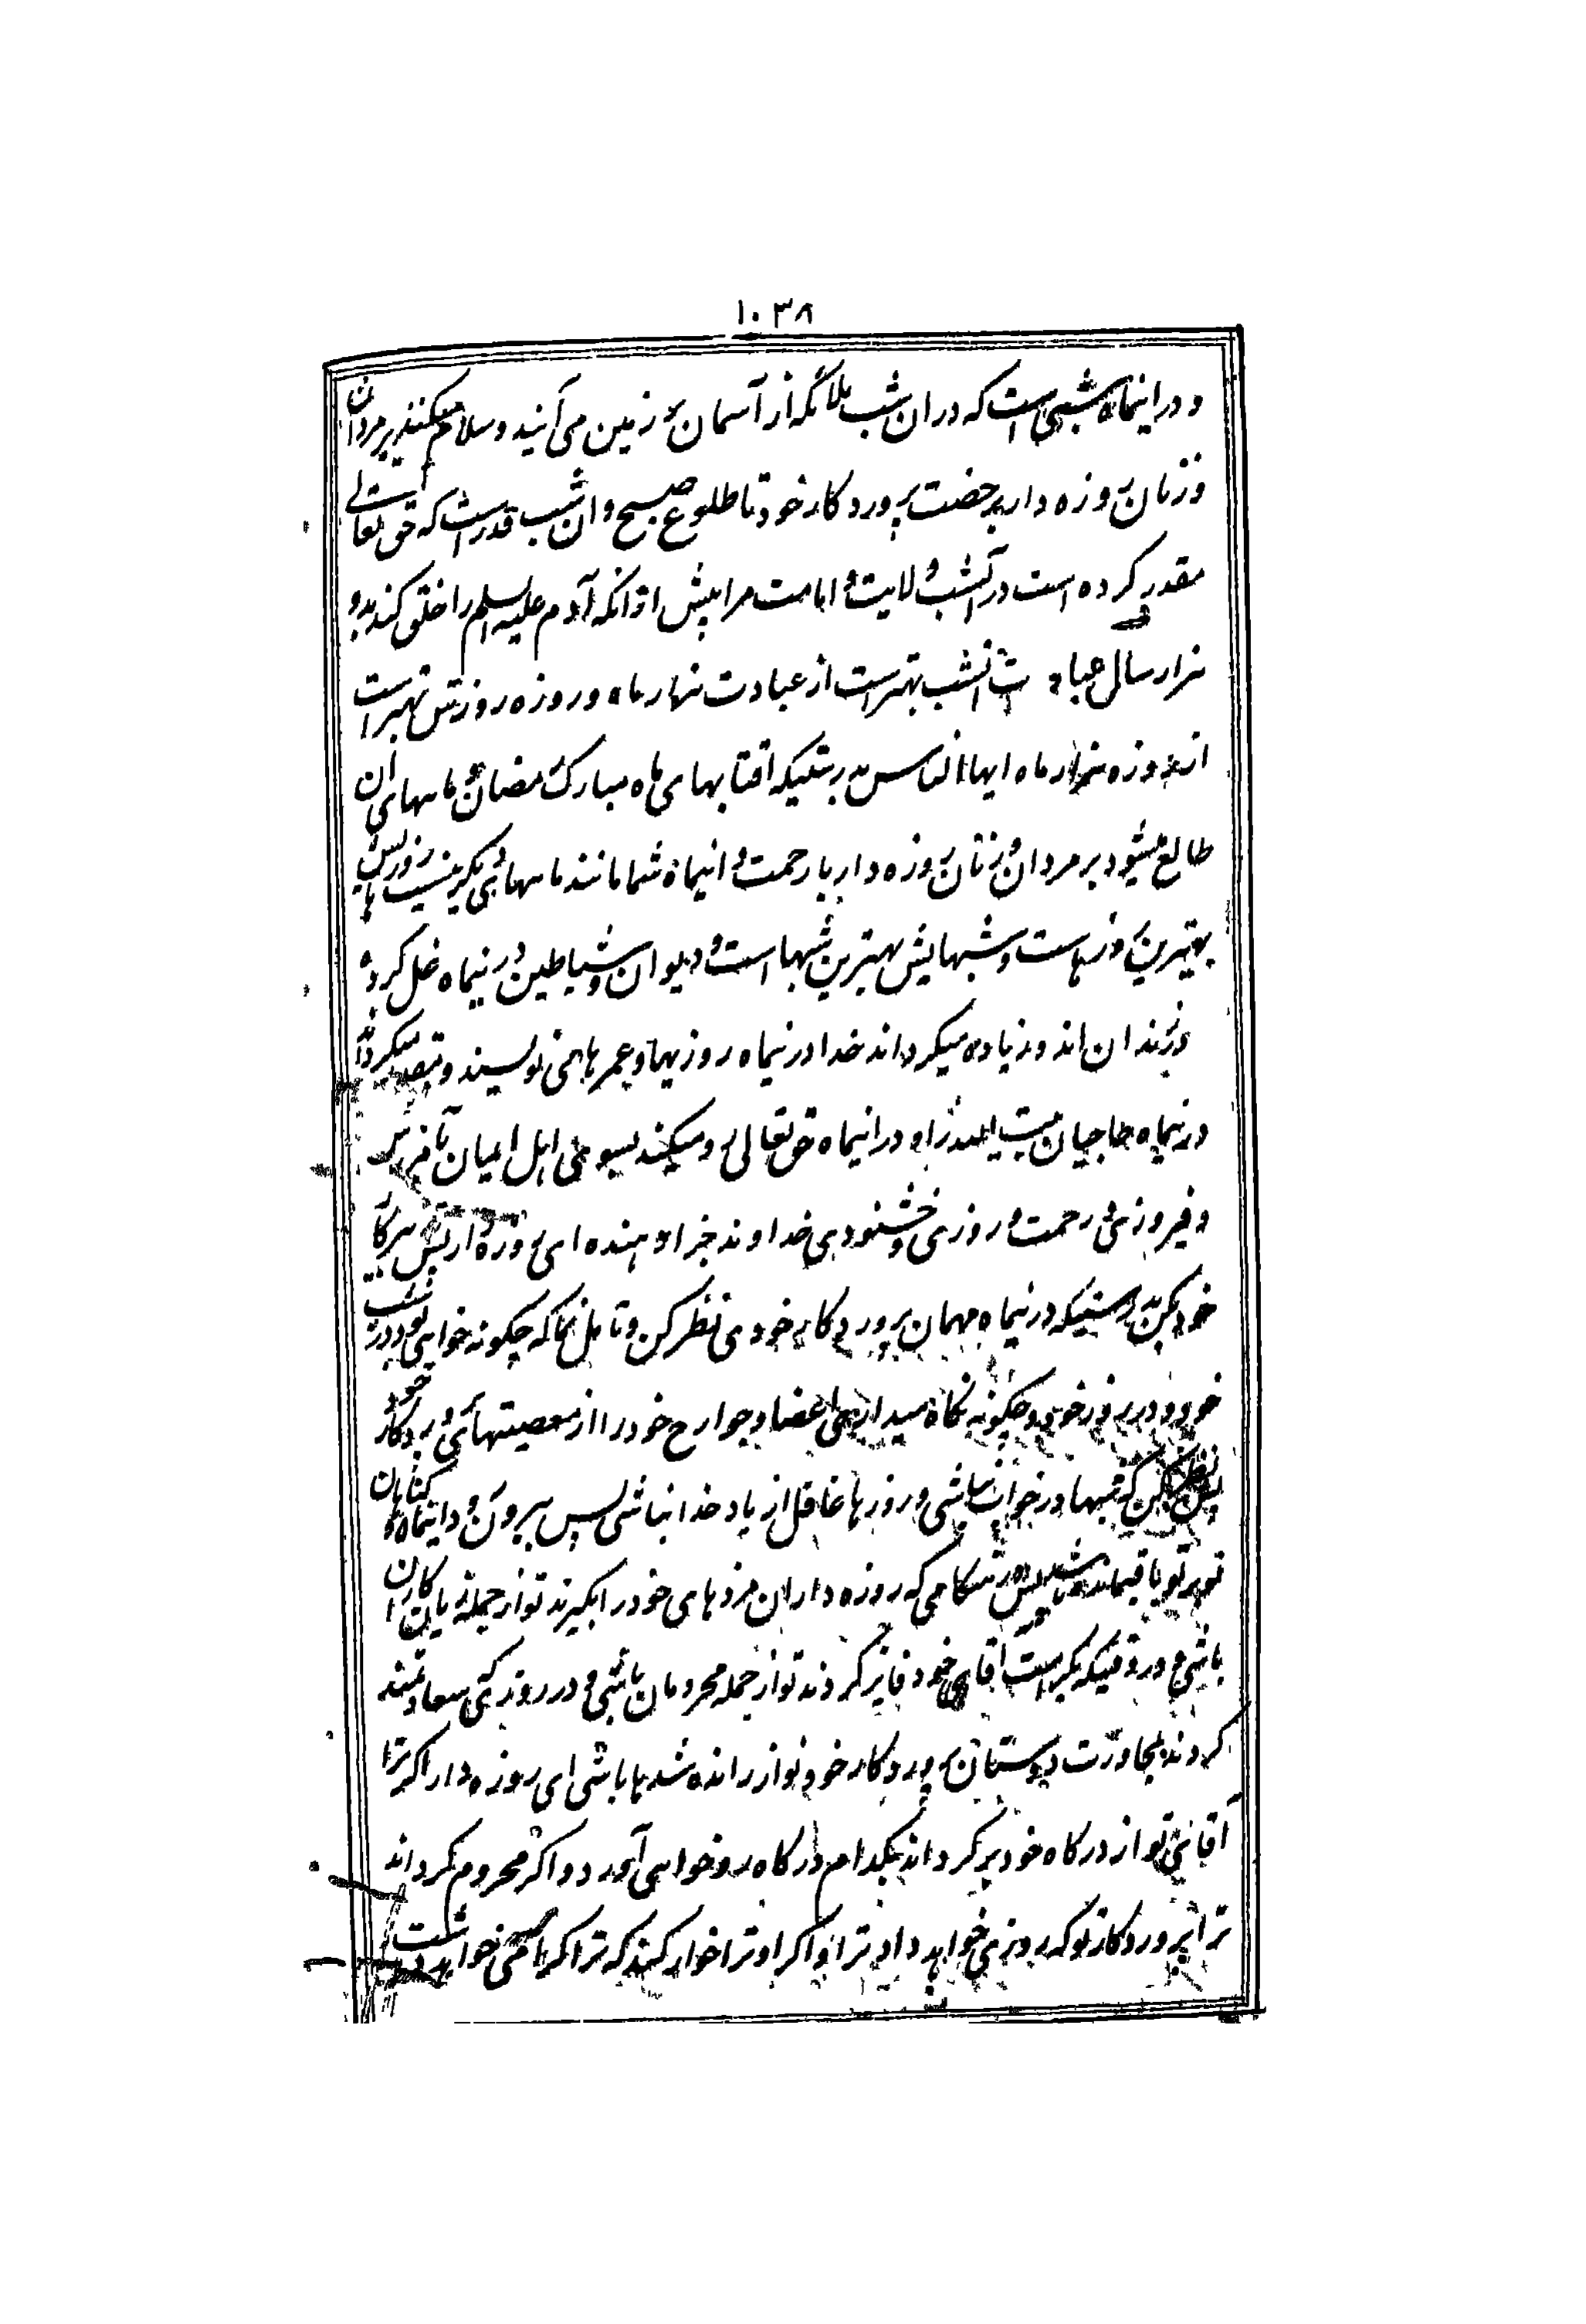 ۱۰۳۸
و در اینماه شبی است که در ان شب ملائکه از آسمان بر زمین می آیند و سلام میکنند بر مردان
و زنان روزه دار بر حضت پرورد کار خود تا طلوع صبح و ان شب قدر است که حق تعالی
مقدر کرده است در آنشب ولایت و امامت مرا پیش از آنکه آدم علیه السلم را خلق کند بدو
هزار سال عبادت انشب بهتر است از عبادت هزار ماه و روزه روزش بهتر است
از روزه هزار ماه ایها الناس بدرستیکه افتابهای ماه مبارک رمضان و ماههای ان
طالع میشود بر مردان و زنان روزه دار با رحمت و اینماه شما مانند ماههای دیگر نیست روزهایش
بهترین روزهاست و شبهایش بهترین شبها است و دیوان و شیاطین در نیماه غل کرده
و زندان اند و زیاده میکرداند خدا در نیماه روزیها و عمرها می نویسند و میکرداند
در نیماه حاجیان بیت را و در اینماه حق تعالی رو میکند بسوی اهل ایمان بآمرزش
و فیروزی رحمت و روزی و خشنودی خداوند جزا دهنده ای روزه دار پس بکار
خود بکن بدرستیکه در نیماه مهمان پرورد کار خودی نظر کن و تامل نما که چکونه خواهی بود در شب
خود و در روز خود و چکونه نکاه میداری اعضا و جوارح خود را از معصیتهای پرورد کار خود
نظر کن که شبها در خواب نباشی و روزها غافل از یاد خدا نباشی پس بیرون رود اینماه و کناهان
تو بر تو باقیمانده باشد پس در هنکامی که روزه داران مزدهای خود را بگیرند تو از جمله زیان کاران
باشی و در وقتیکه بکرامت اقای خود فایز کردند تو از جمله محرومان باشی و در روزی که سعادتمند
کردند بمجاورت دوستان پرورد کار خود تو از رانده شدها باشی ای روزه دار اکر ترا
آقای تو از درکاه خود بر کرداند بکدام درکاه رو خواهی آورد و اکر محروم کرداند
ترا پرورد کار تو که روزی خواهد داد ترا و اکر او ترا خوار کند که ترا کرامی خواهد داشت